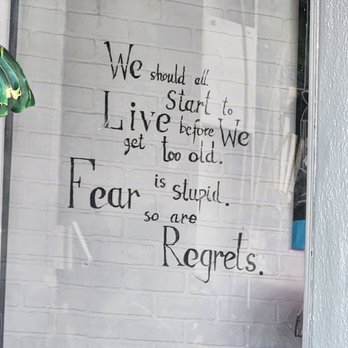 We should all
Start to
Live before We
get too old.
Fear is stupid.
so are
Regrets.